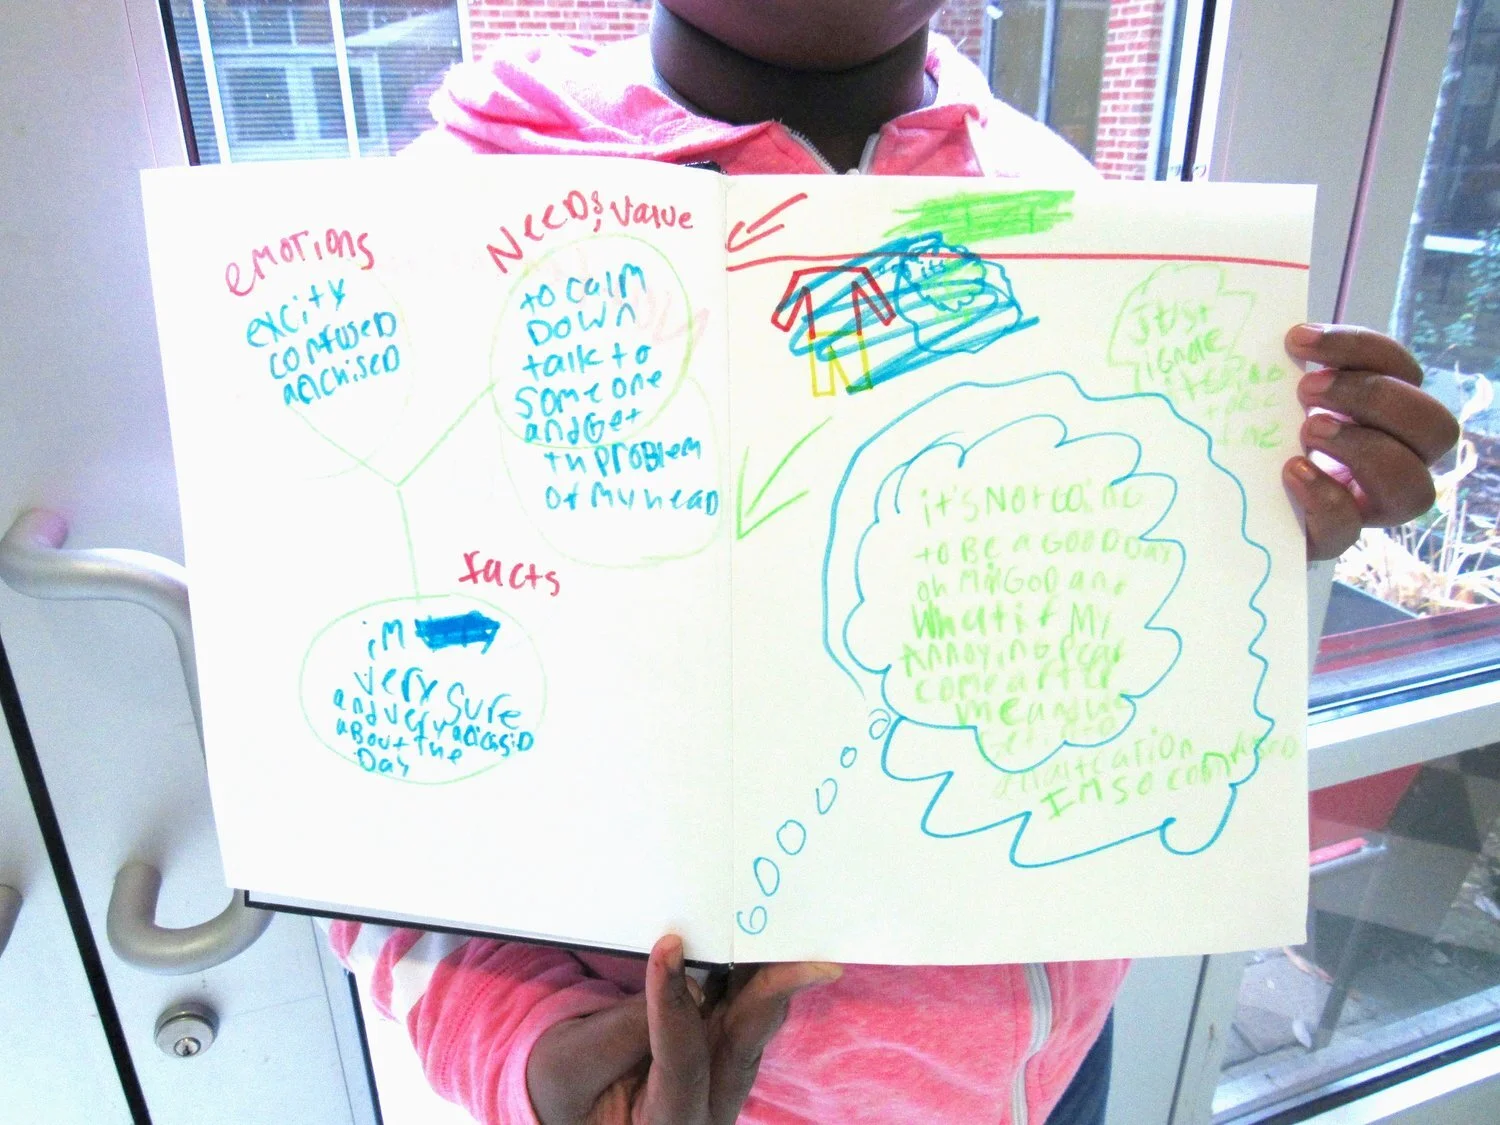 emotions
excity
confused
anchised
Needs, value
to calm
Down
talk to
someone
and Get
th problem
of my head
facts
im
very sure
and very
about the
Day
Just
ignore
it's Not Going
to Be a GOOD Day
oh My GOD and
What if My
Annoying Fear
come after
me and we
I'M SO confused